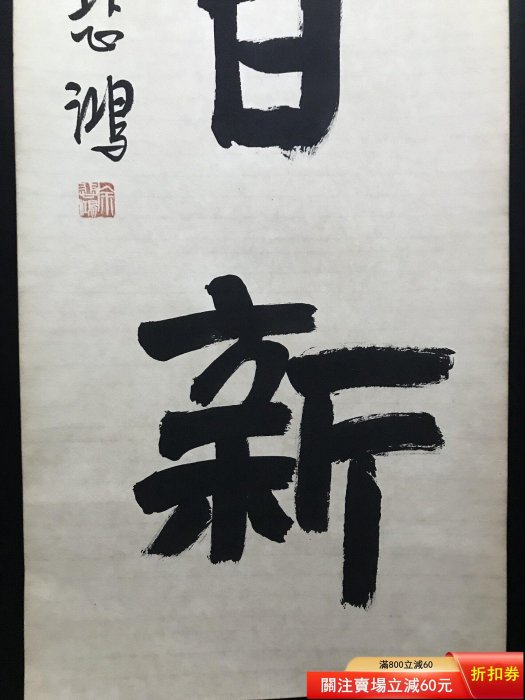 日
新
悲鴻
滿800立減60
關注賣場立減60元
折扣券